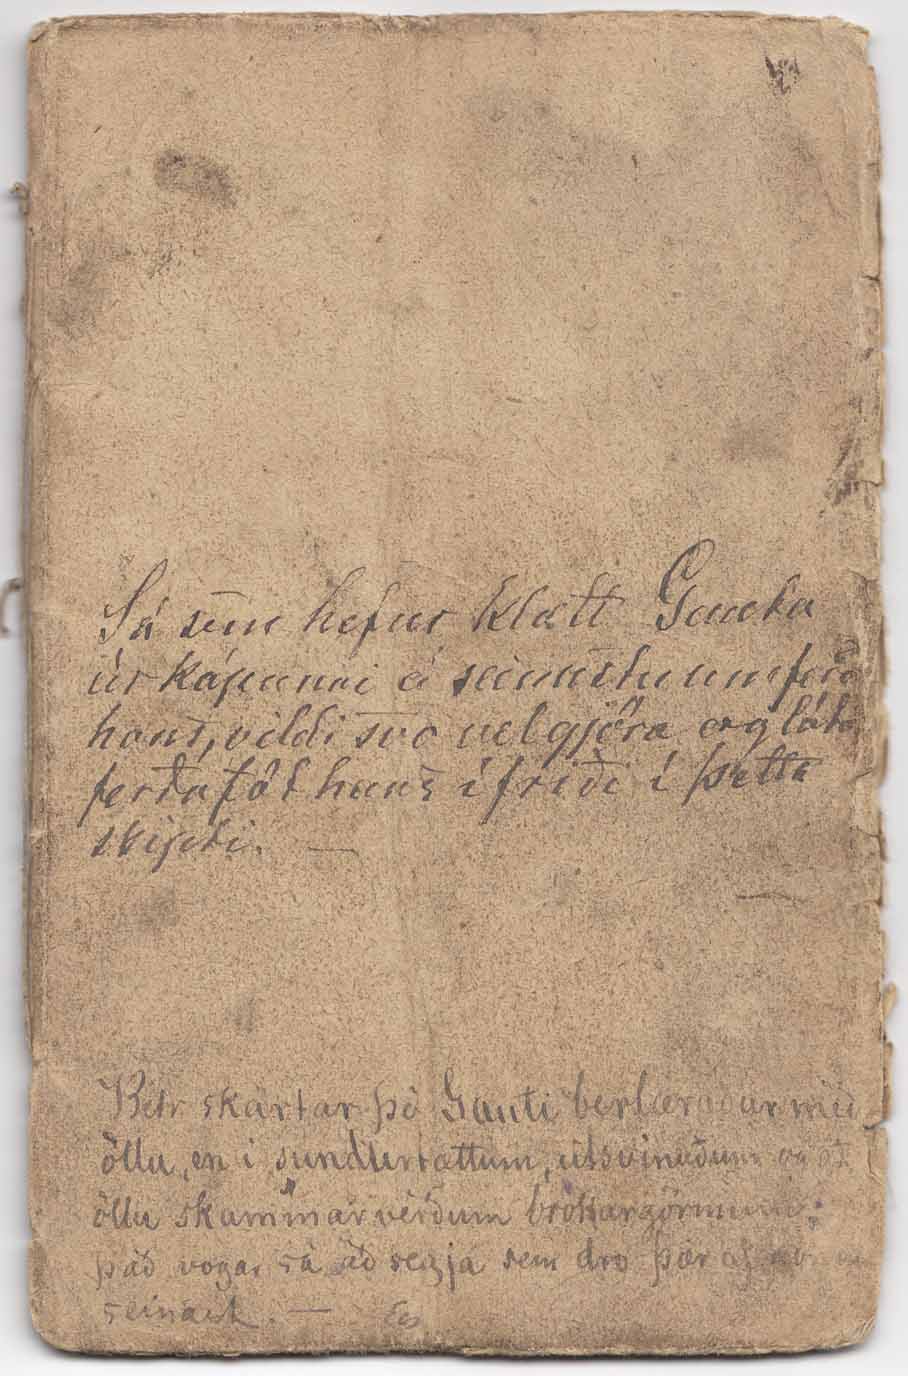 Sá sem hefur klætt Gauta
úr kápunni á seinustu umferð
hans, vildi svo vel gjöra og láta
ferðaföt hans í friði í þetta
skipti. —
Betr skartar þó Gauti berlæraður með
öllu, en i sundurtættum, útsvinuðum og að
öllu skammarverðum brókargörmum;
það vogar sá að segja sem dro þær af
seinast. —